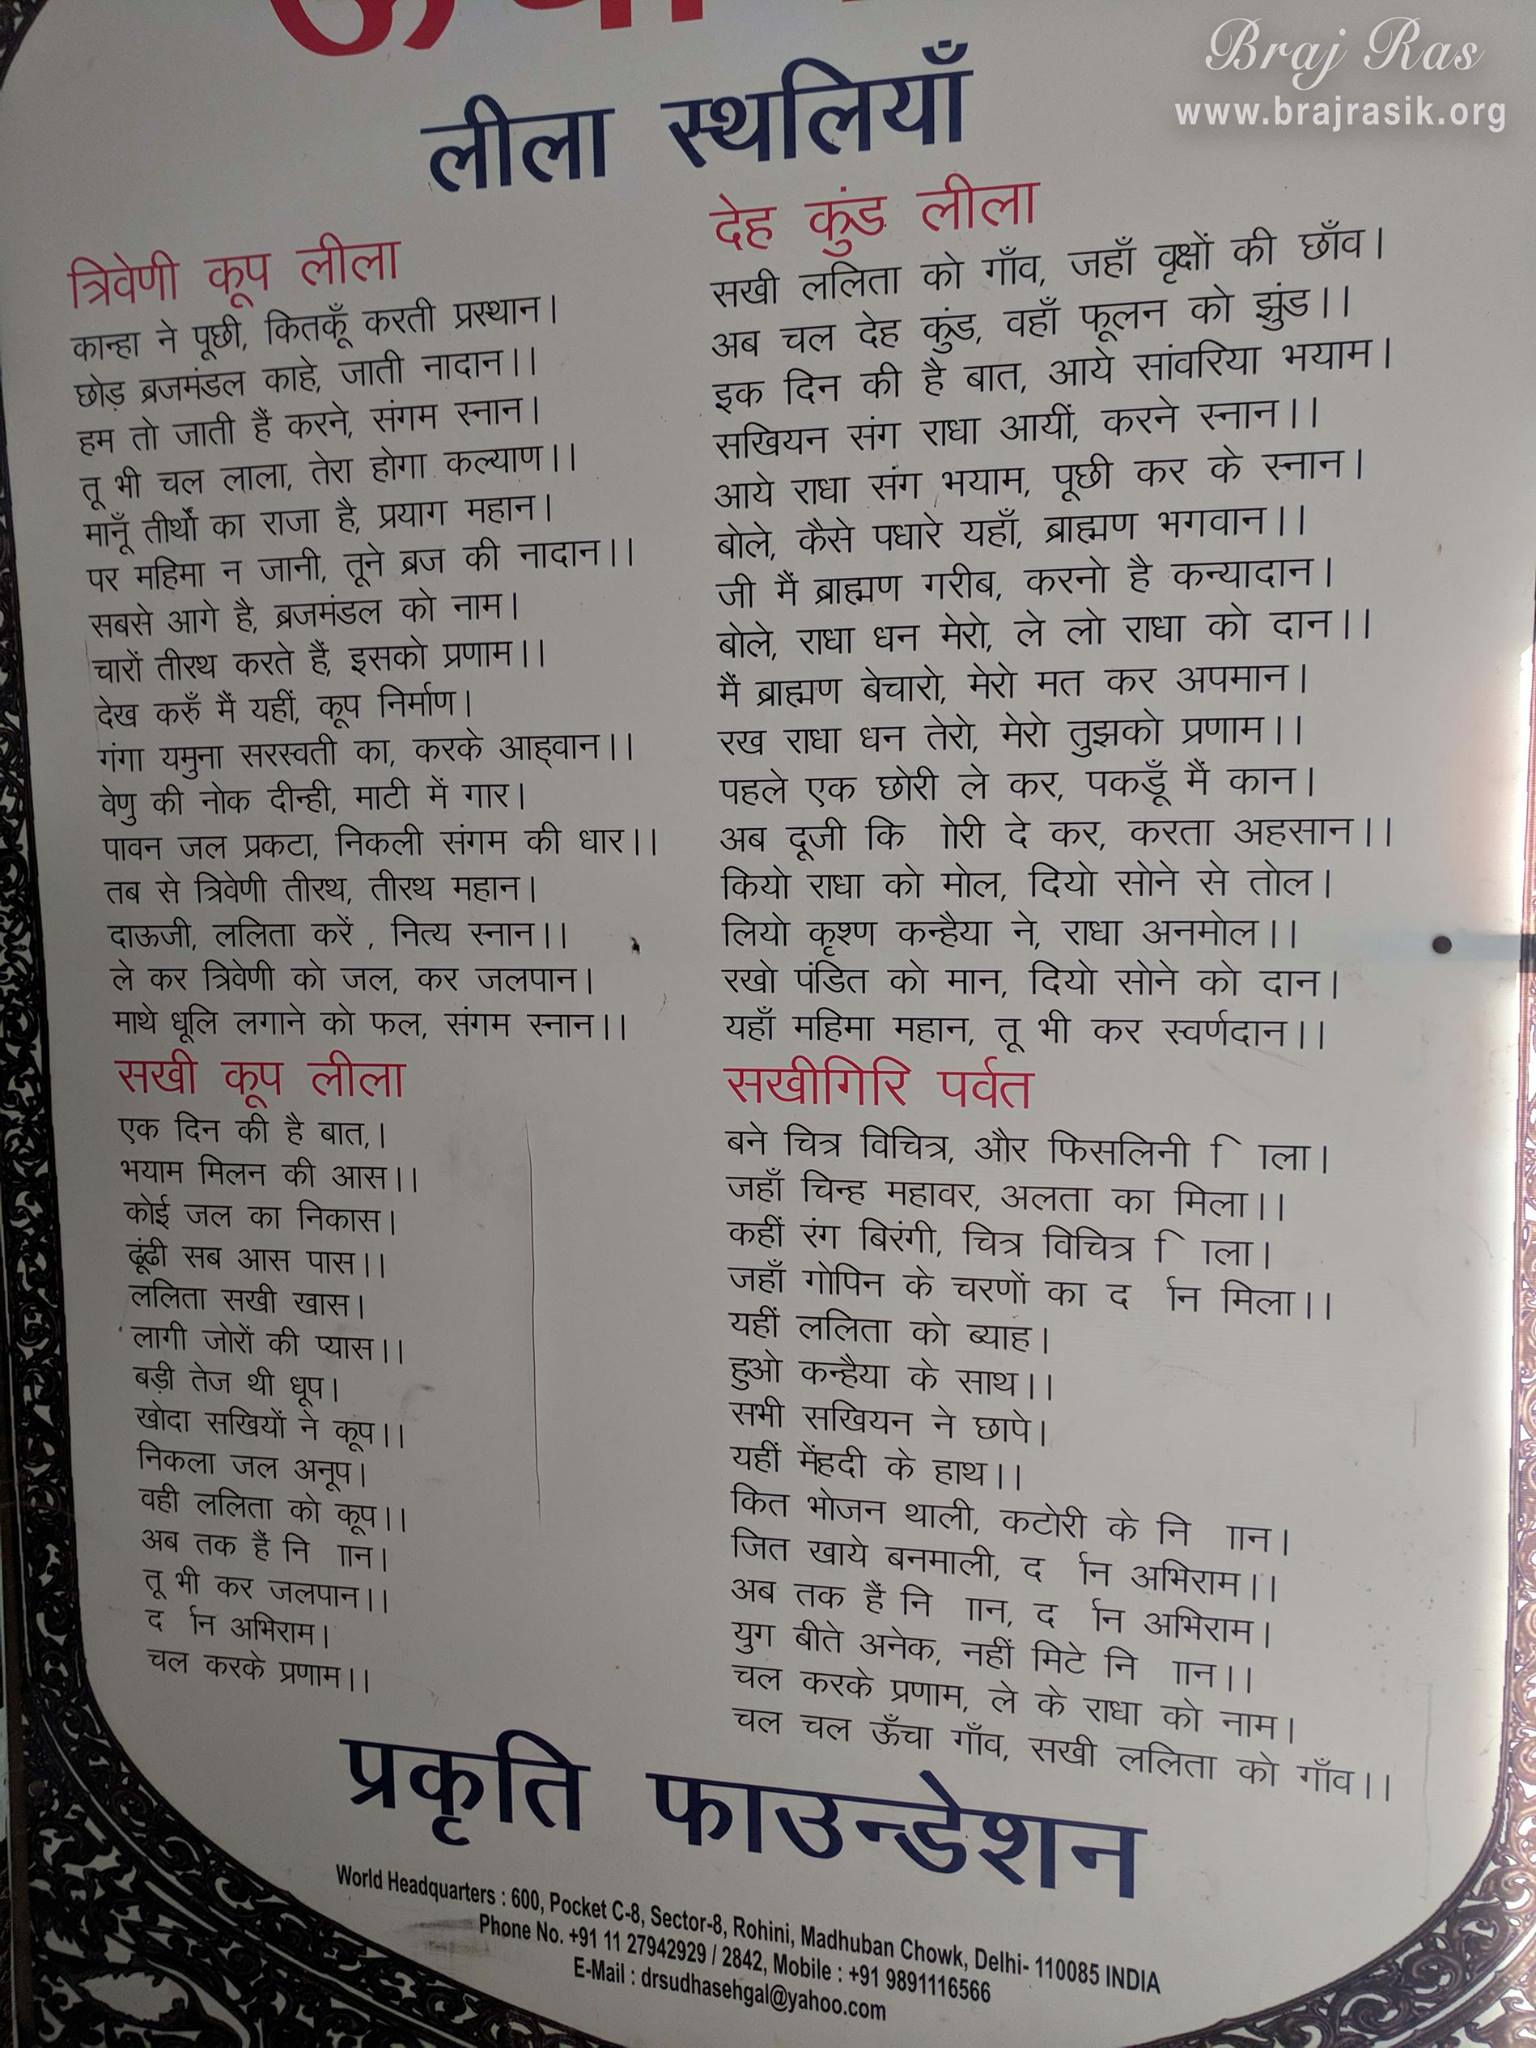 Braj Ras
www.brajrasik.org
लीला स्थलियाँ
त्रिवेणी कूप लीला
कान्हा ने पूछी, कितकूँ करती प्रस्थान।
छोड़ ब्रजमंडल काहे, जाती नादान।।
हम तो जाती हैं करने, संगम स्नान।
तू भी चल लाला, तेरा होगा कल्याण।।
मानूँ तीर्थों का राजा है, प्रयाग महान।
पर महिमा न जानी, तूने ब्रज की नादान।।
सबसे आगे है, ब्रजमंडल को नाम।
चारों तीरथ करते हैं, इसको प्रणाम।।
देख करुँ मैं यहीं, कूप निर्माण।
गंगा यमुना सरस्वती का, करके आह्वान।।
वेणु की नोक दीन्ही, माटी में गार।
पावन जल प्रकटा, निकली संगम की धार।।
तब से त्रिवेणी तीरथ, तीरथ महान।
दाऊजी, ललिता करें , नित्य स्नान।।
ले कर त्रिवेणी को जल, कर जलपान।
माथे धूलि लगाने को फल, संगम स्नान।।
सखी कूप लीला
एक दिन की है बात,।
भयाम मिलन की आस।।
कोई जल का निकास।
ढूंढी सब आस पास।।
ललिता सखी खास।
लागी जोरों की प्यास।।
बड़ी तेज थी धूप।
खोदा सखियों ने कूप।।
निकला जल अनूप।
वही ललिता को कूप।।
अब तक हैं नि ाान।
तू भी कर जलपान।।
द र्ान अभिराम।
चल करके प्रणाम।।
देह कुंड लीला
सखी ललिता को गाँव, जहाँ वृक्षों की छाँव।
अब चल देह कुंड, वहाँ फूलन को झुंड।।
इक दिन की है बात, आये सांवरिया भयाम।
सखियन संग राधा आयीं, करने स्नान।।
आये राधा संग भयाम, पूछी कर के स्नान।
बोले, कैसे पधारे यहाँ, ब्राह्मण भगवान।।
जी मैं ब्राह्मण गरीब, करनो है कन्यादान।
बोले, राधा धन मेरो, ले लो राधा को दान।।
मैं ब्राह्मण बेचारो, मेरो मत कर अपमान।
रख राधा धन तेरो, मेरो तुझको प्रणाम।।
पहले एक छोरी ले कर, पकडूँ मैं कान।
अब दूजी कि ाोरी दे कर, करता अहसान।।
कियो राधा को मोल, दियो सोने से तोल।
लियो कृश्ण कन्हैया ने, राधा अनमोल।।
रखो पंडित को मान, दियो सोने को दान।
यहाँ महिमा महान, तू भी कर स्वर्णदान।।
सखीगिरि पर्वत
बने चित्र विचित्र, और फिसलिनी ि ाला।
जहाँ चिन्ह महावर, अलता का मिला।।
कहीं रंग बिरंगी, चित्र विचित्र ि ाला।
जहाँ गोपिन के चरणों का द र्ान मिला।।
यहीं ललिता को ब्याह।
हुओ कन्हैया के साथ।।
सभी सखियन ने छापे।
यहीं मेंहदी के हाथ।।
कित भोजन थाली, कटोरी के नि ाान।
जित खाये बनमाली, द र्ान अभिराम।।
अब तक हैं नि ाान, द र्ान अभिराम।
युग बीते अनेक, नहीं मिटे नि ाान।।
चल करके प्रणाम, ले के राधा को नाम।
चल चल ऊँचा गाँव, सखी ललिता को गाँव।।
प्रकृति फाउन्डेशन
World Headquarters : 600, Pocket C-8, Sector-8, Rohini, Madhuban Chowk, Delhi- 110085 INDIA
Phone No. +91 11 27942929 / 2842, Mobile : +91 9891116566
E-Mail : drsudhasehgal@yahoo.com